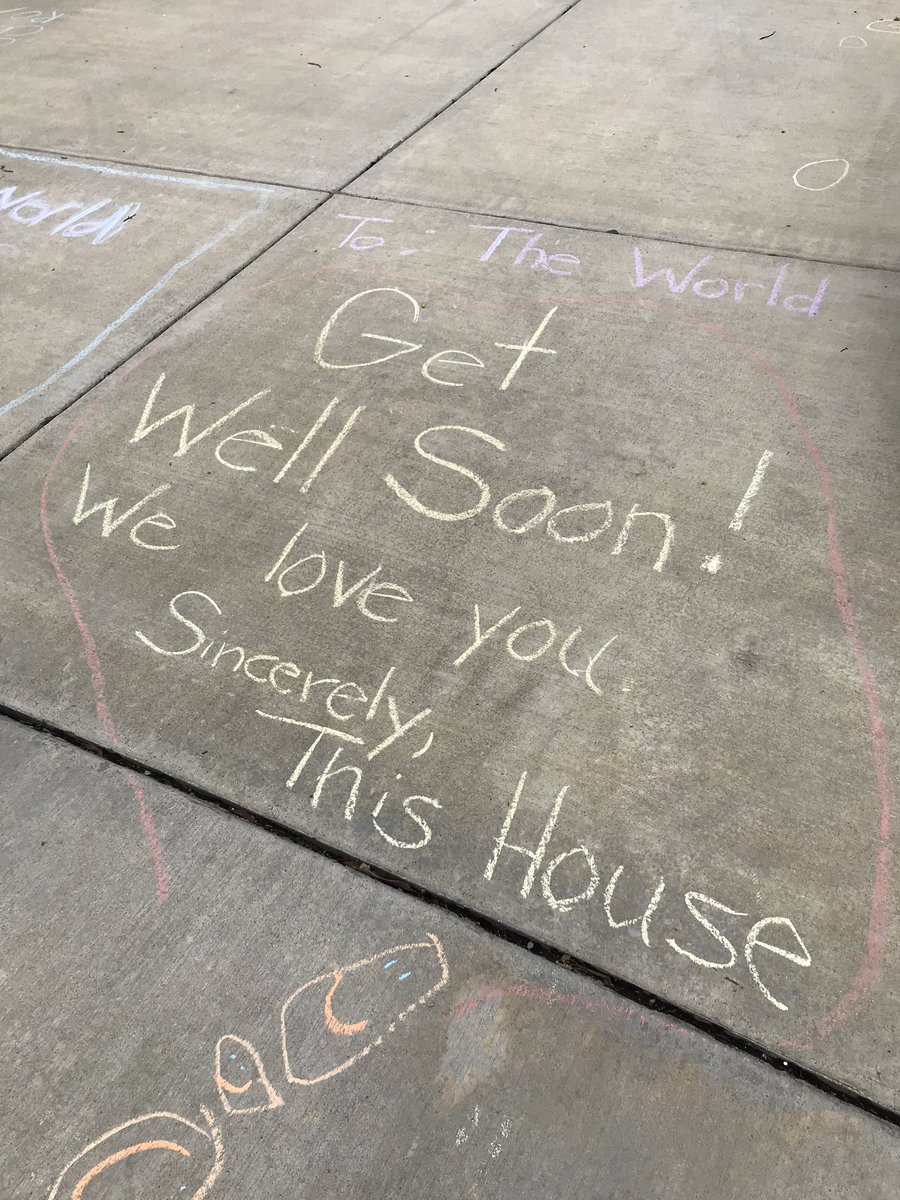 World
To: The World
Get
Well Soon!
We love you.
Sincerely,
This House